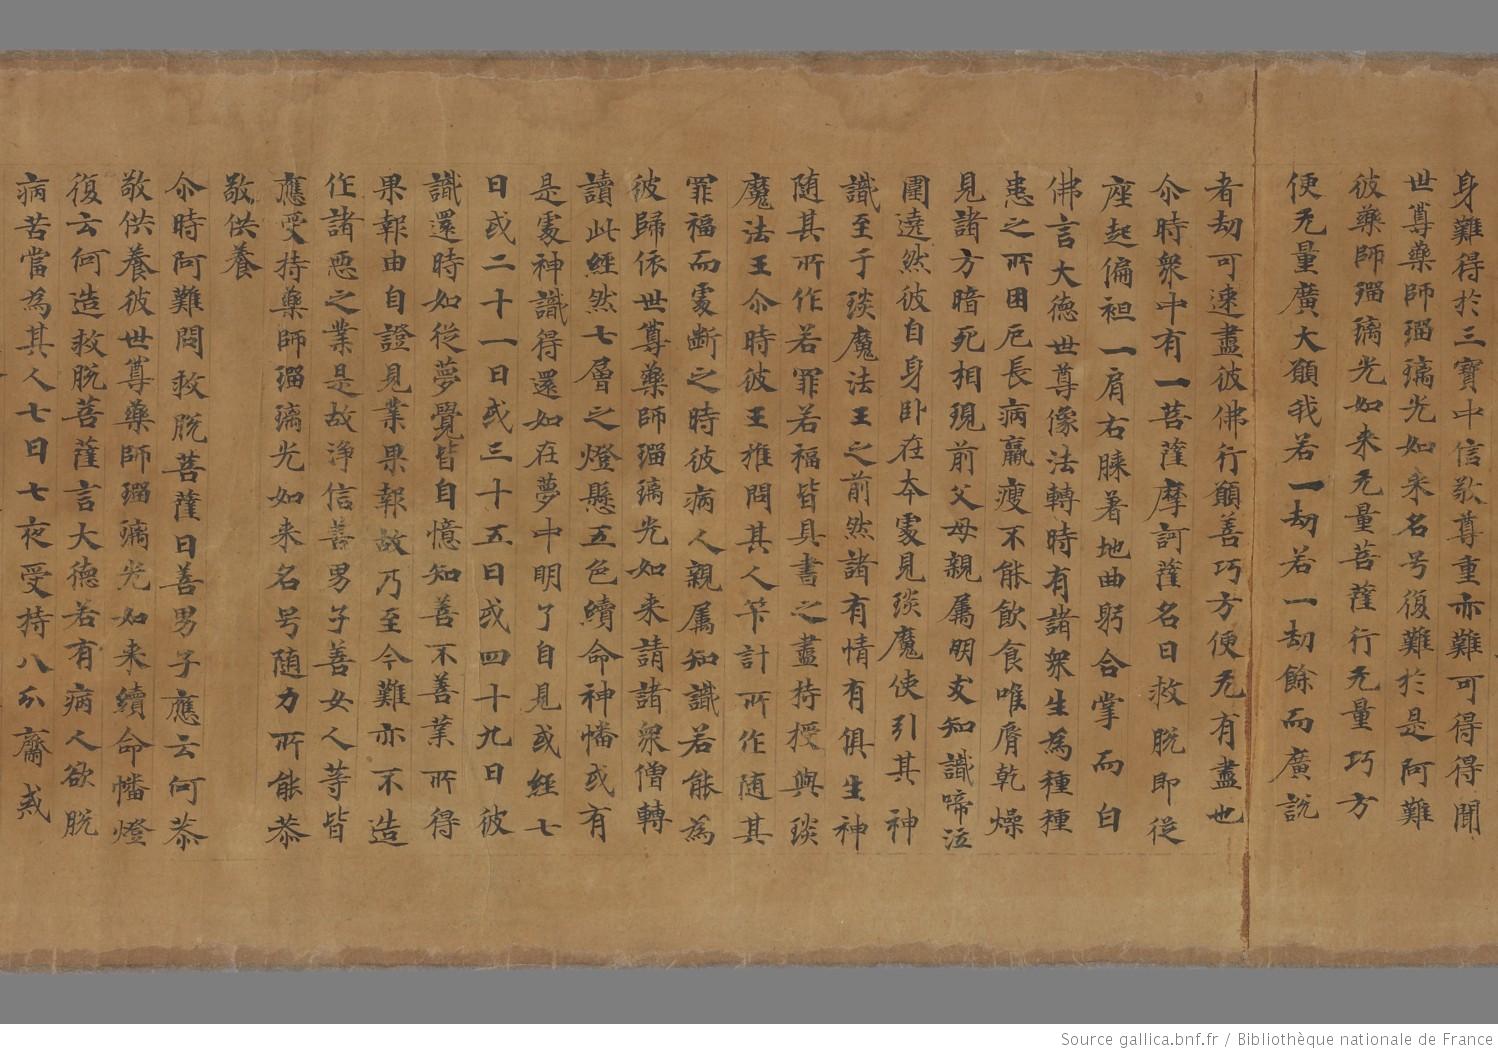 身難得於三寶中信敬尊重亦難可得得聞
世尊藥師瑠璃光如来名号復難於是阿難
彼藥師瑠璃光如来无量菩薩行无量巧方
便无量廣大願我若一劫若一劫餘而廣說
者劫可速盡彼佛行願善巧方便无有盡也
尒時衆中有一菩薩摩訶薩名曰救脱即従
座起偏袒一肩右膝著地曲躬合掌而白
佛言大徳世尊像法轉時有諸衆生為種種
患之所困厄長病羸瘦不能飲食唯脣乾燥
見諸方暗死相現前父母親属朋友知識啼泣
圍遶然彼自身卧在夲䖏見琰魔使引其神
識至于琰魔法王之前然諸有情有俱生神
随其所作若罪若福皆具書之盡持授與琰
魔法王尒時彼王推問其人筭計所作随其
罪福而䖏断之時彼病人親属知識若能為
彼歸依世尊藥師瑠璃光如来請諸衆僧轉
讀此經然七層之燈懸五色續命神幡或有
是䖏神識得還如在夢中明了自見或經七
日或二十一日或三十五日或四十九日彼
識還時如従夢覺皆自憶知善不善業所得
果報由自證見業果報故乃至命難亦不造
作諸惡之業是故浄信善男子善女人等皆
應受持藥師瑠璃光如来名号随力所能恭
敬供養
尒時阿難問救脱菩薩曰善男子應云何恭
敬供養彼世尊藥師瑠璃光如来續命幡燈
復云何造救脱菩薩言大徳若有病人欲脱
病苦當為其人七日七夜受持八分齋戒
Source gallica.bnf.fr / Bibliothèque nationale de France